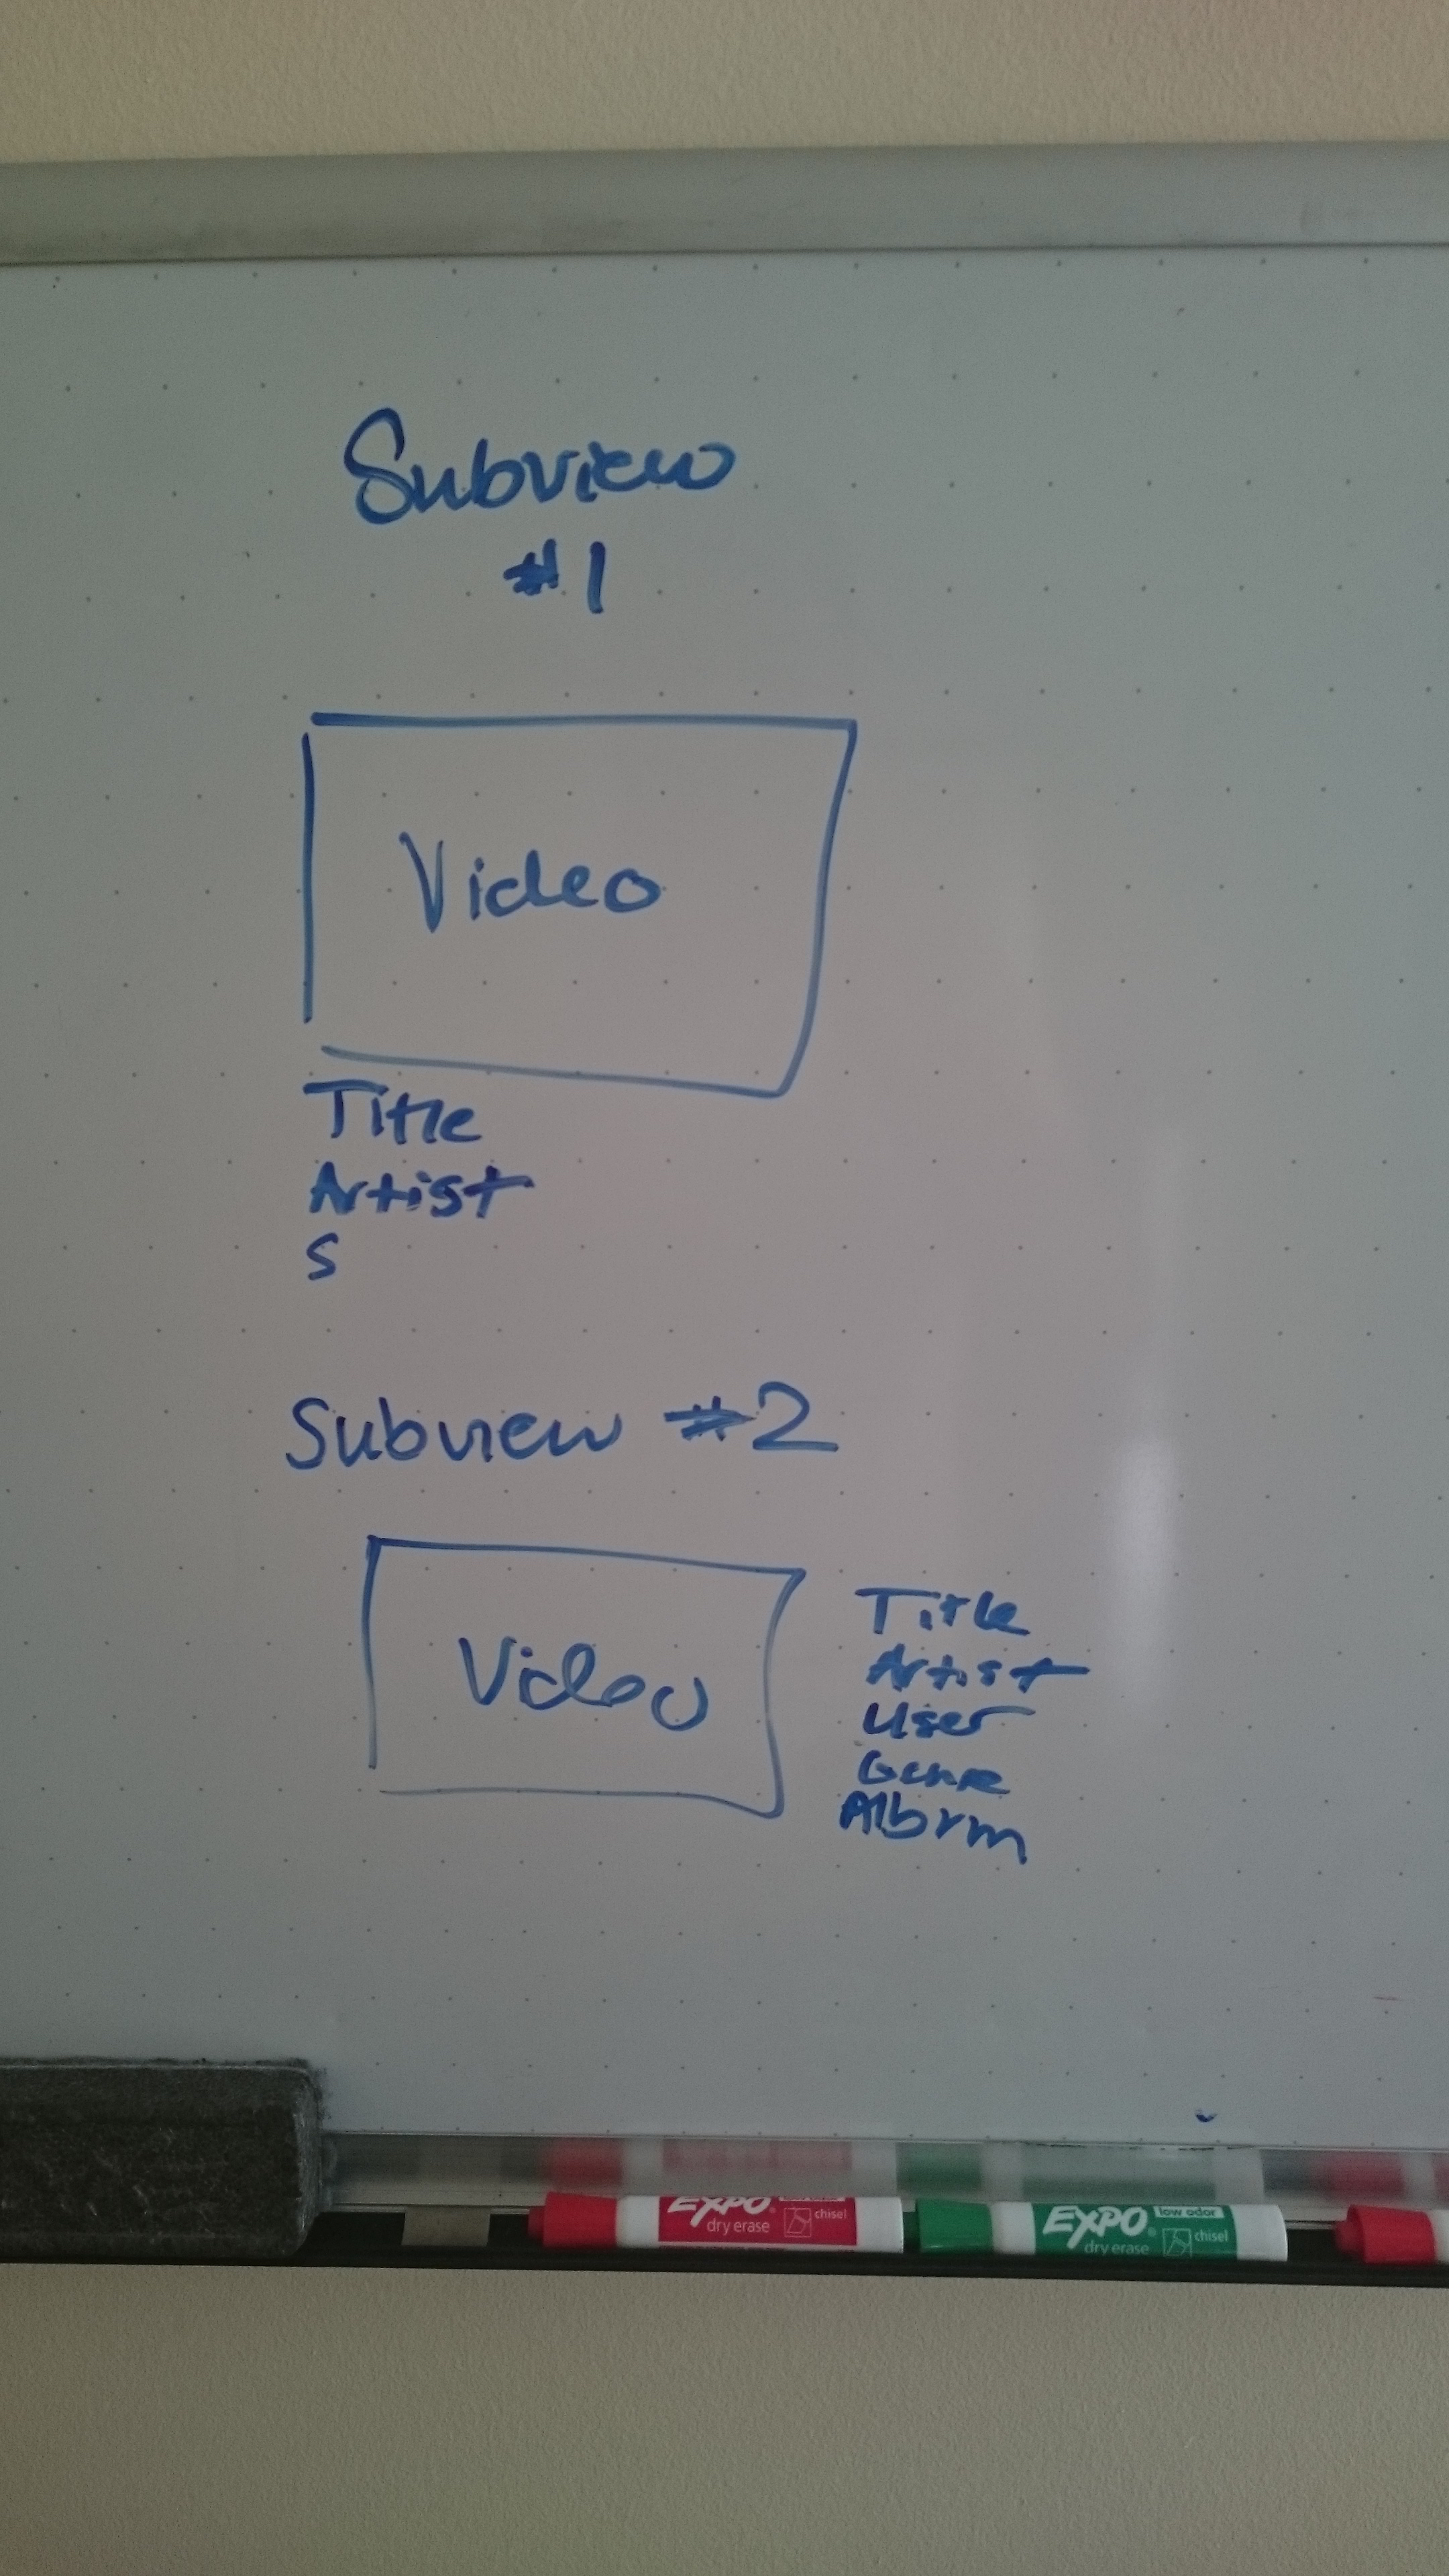 Subview
#1
Video
Title
Artist
S
Subview #2
Video
Title
Artist
User
Genre
Album
EXPO
dry erase
chisel
EXPO
low odor
dry erase
chisel